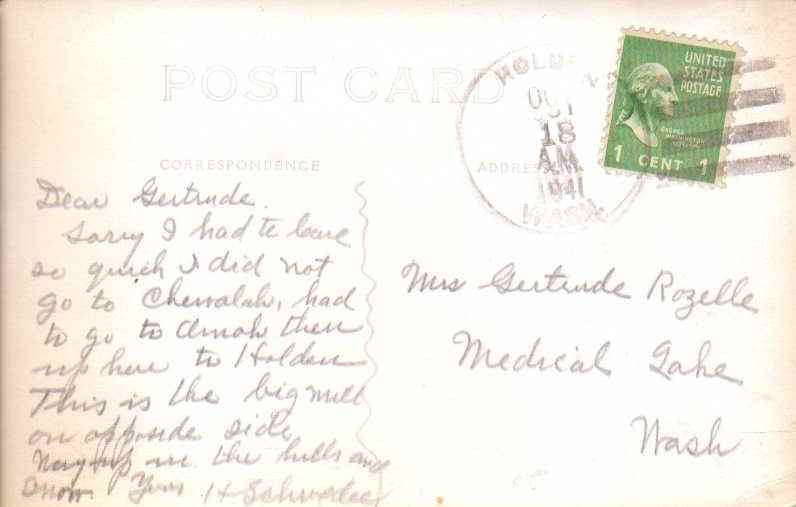 POST CARD
CORRESPONDENCE
ADDRESS
HOLDEN
OCT
18
A.M.
1941
WASH.
UNITED
STATES
POSTAGE
GEORGE
WASHINGTON
1 CENT 1
Dear Gertrude.
Sorry I had to leave
so quick I did not
go to Chewalah, had
to go to Omak then
up here to Holden
This is the big mill
on opposide side
Way up in the hills and
Snow. Yours H Schroeder
Mrs Gertrude Rozelle
Medical Lake
Wash